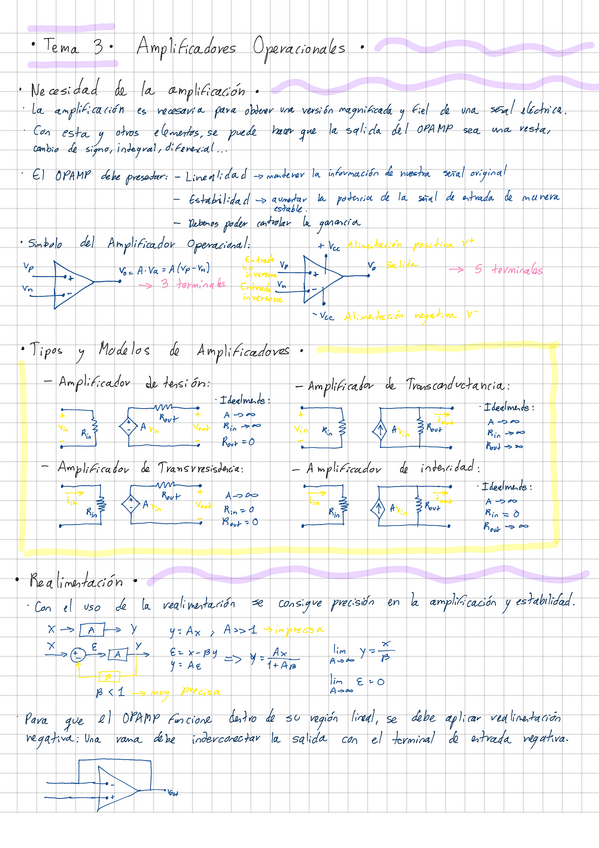 • Tema 3 • Amplificadores Operacionales •
• Necesidad de la amplificación •
· La amplificación es necesaria para obtener una versión magnificada y fiel de una señal eléctrica.
· Con esta y otros elementos, se puede hacer que la salida del OPAMP sea una resta,
cambio de signo, integral, diferencial...
· El OPAMP debe presentar: - Linealidad → mantener la información de nuestra señal original
- Estabilidad → aumentar la potencia de la señal de entrada de manera
estable.
- Debemos poder controlar la ganancia
· Símbolo del Amplificador Operacional:
Vp
Vn
+
-
Vo = A·Va = A(Vp-Vn)
→ 3 terminales
+Vcc Alimentación positiva V+
Entrada no inversora Vp
Entrada inversora Vn
+
-
Vo Salida
→ 5 terminales
-Vcc Alimentación negativa V-
• Tipos y Modelos de Amplificadores •
- Amplificador de tensión:
Vin Rin A Vin Rout Vout
· Idealmente:
A → ∞
Rin → ∞
Rout = 0
- Amplificador de Transconductancia:
Vin Rin A Vin Rout iout
· Idealmente:
A → ∞
Rin → ∞
Rout → ∞
- Amplificador de Transresistencia:
iin Rin A iin Rout Vout
A → ∞
Rin = 0
Rout = 0
- Amplificador de intensidad:
iin Rin A iin Rout iout
· Idealmente:
A → ∞
Rin = 0
Rout → ∞
• Realimentación •
· Con el uso de la realimentación se consigue precisión en la amplificación y estabilidad.
X → A → Y y = Ax , A>>1 → imprecisa
X ε A Y
β
ε = x - βy
y = Aε
=> y = Ax / 1+Aβ
lim A→∞ y = x / β
lim A→∞ ε = 0
β < 1 → muy precisa
· Para que el OPAMP funcione dentro de su región lineal, se debe aplicar realimentación
negativa: Una rama debe interconectar la salida con el terminal de entrada negativa.
-
+